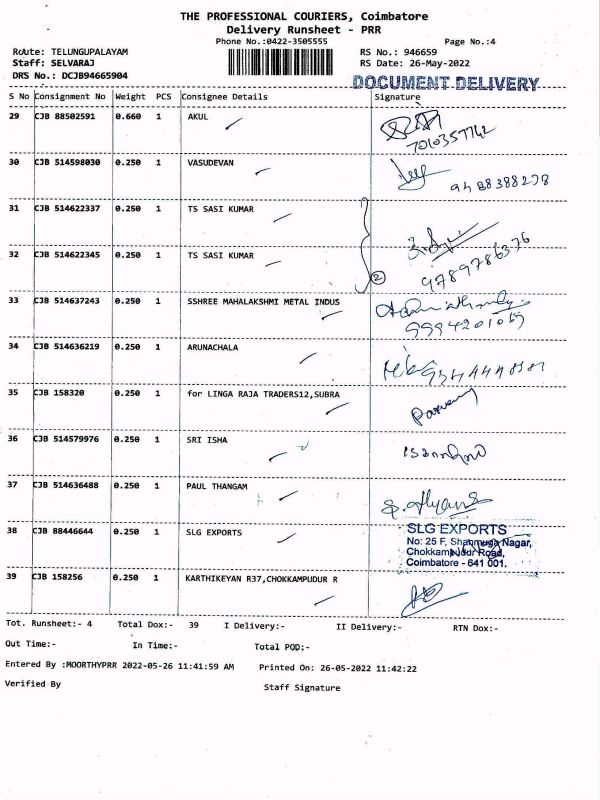 THE PROFESSIONAL COURIERS, Coimbatore
Delivery Runsheet - PRR
Phone No.:0422-3505555
Page No.:4
Route: TELUNGUPALAYAM
RS No.: 946659
Staff: SELVARAJ
RS Date: 26-May-2022
DRS No.: DCJB94665904
DOCUMENT DELIVERY
S No Consignment No Weight PCS Consignee Details Signature
29 CJB 88502591 0.660 1 AKUL
7010357742
30 CJB 514598030 0.250 1 VASUDEVAN
31 CJB 514622337 0.250 1 TS SASI KUMAR
32 CJB 514622345 0.250 1 TS SASI KUMAR
2
9789786376
33 CJB 514637243 0.250 1 SSHREE MAHALAKSHMI METAL INDUS
34 CJB 514636219 0.250 1 ARUNACHALA
35 CJB 158320 0.250 1 for LINGA RAJA TRADERS12,SUBRA
36 CJB 514579976 0.250 1 SRI ISHA
37 CJB 514636488 0.250 1 PAUL THANGAM
38 CJB 88446644 0.250 1 SLG EXPORTS
SLG EXPORTS
No: 25 F, Shanmuga Nagar,
Chokkampudur Road,
Coimbatore - 641 001.
39 CJB 158256 0.250 1 KARTHIKEYAN R37,CHOKKAMPUDUR R
Tot. Runsheet:- 4 Total Dox:- 39 I Delivery:- II Delivery:- RTN Dox:-
Out Time:- In Time:- Total POD:-
Entered By :MOORTHYPRR 2022-05-26 11:41:59 AM Printed On: 26-05-2022 11:42:22
Verified By Staff Signature